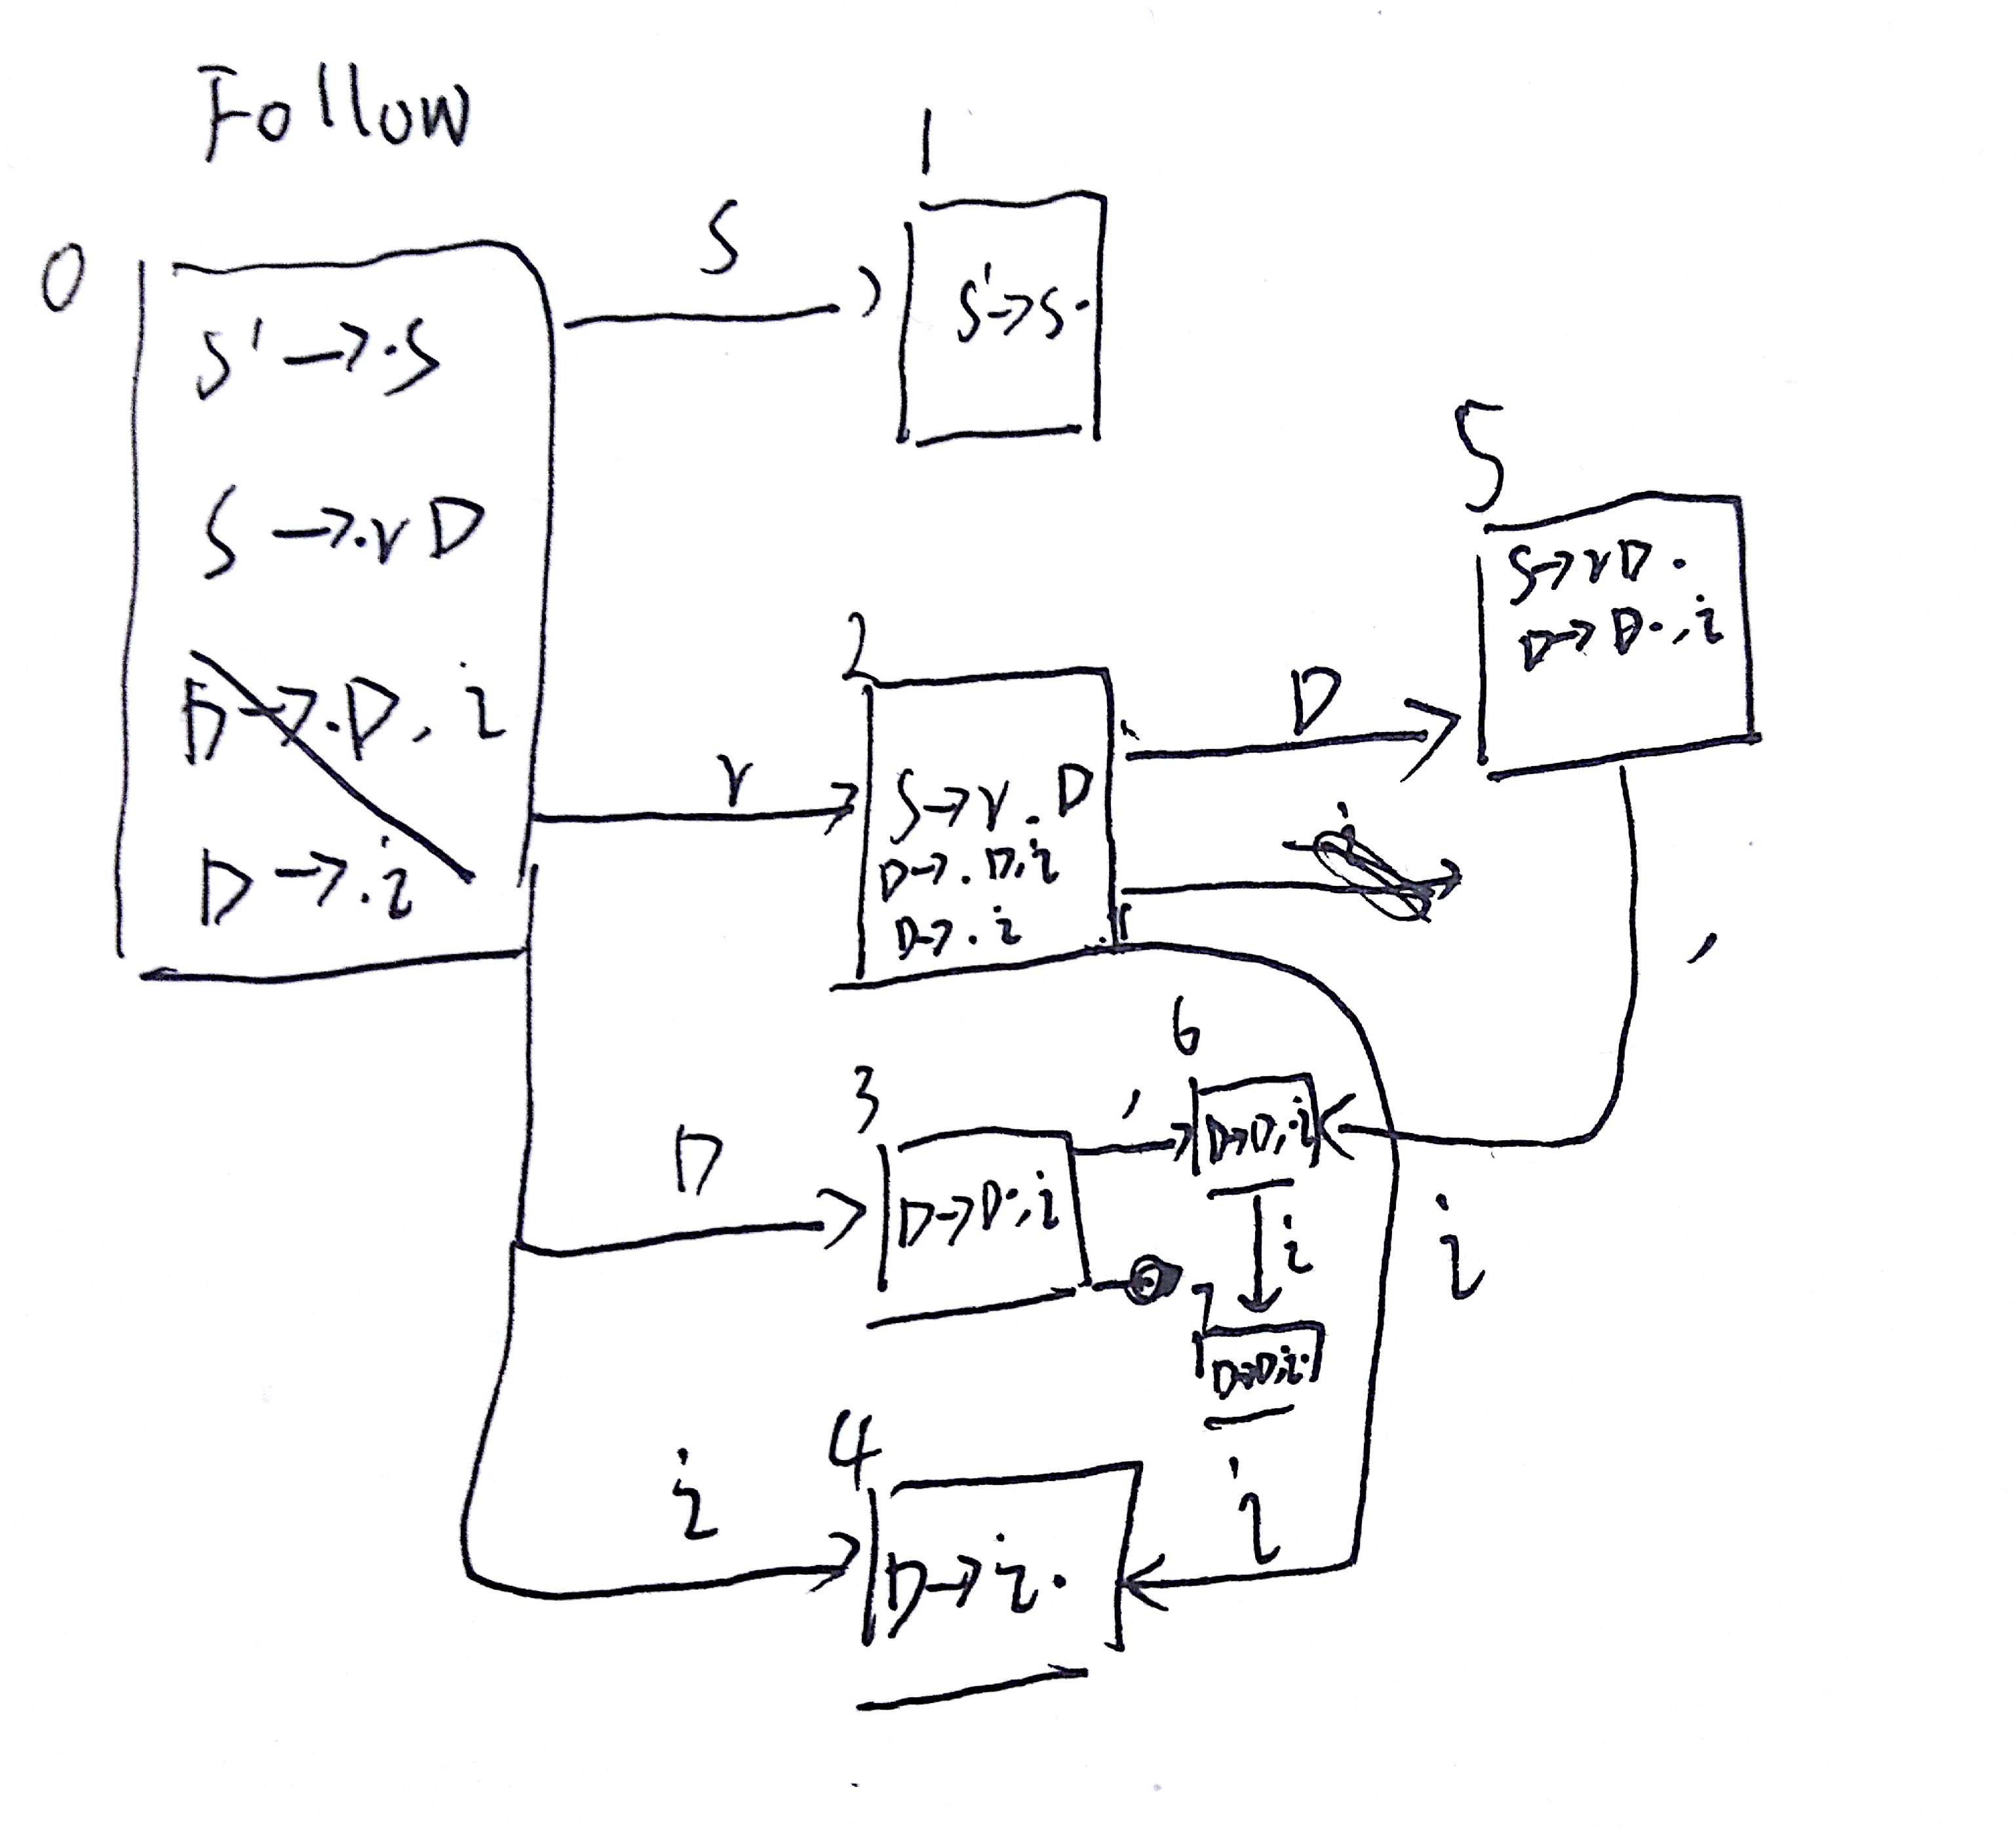 Follow
0
S' → .S
S → .r D
D → .D , i
D → .i
S
1
S' → S.
r
2
S → r . D
D → . D , i
D → . i
D
5
S → r D .
D → D . , i
i
,
D
3
D → D . , i
,
6
D → D , . i
i
7
D → D , i .
i
4
D → i .
i
i